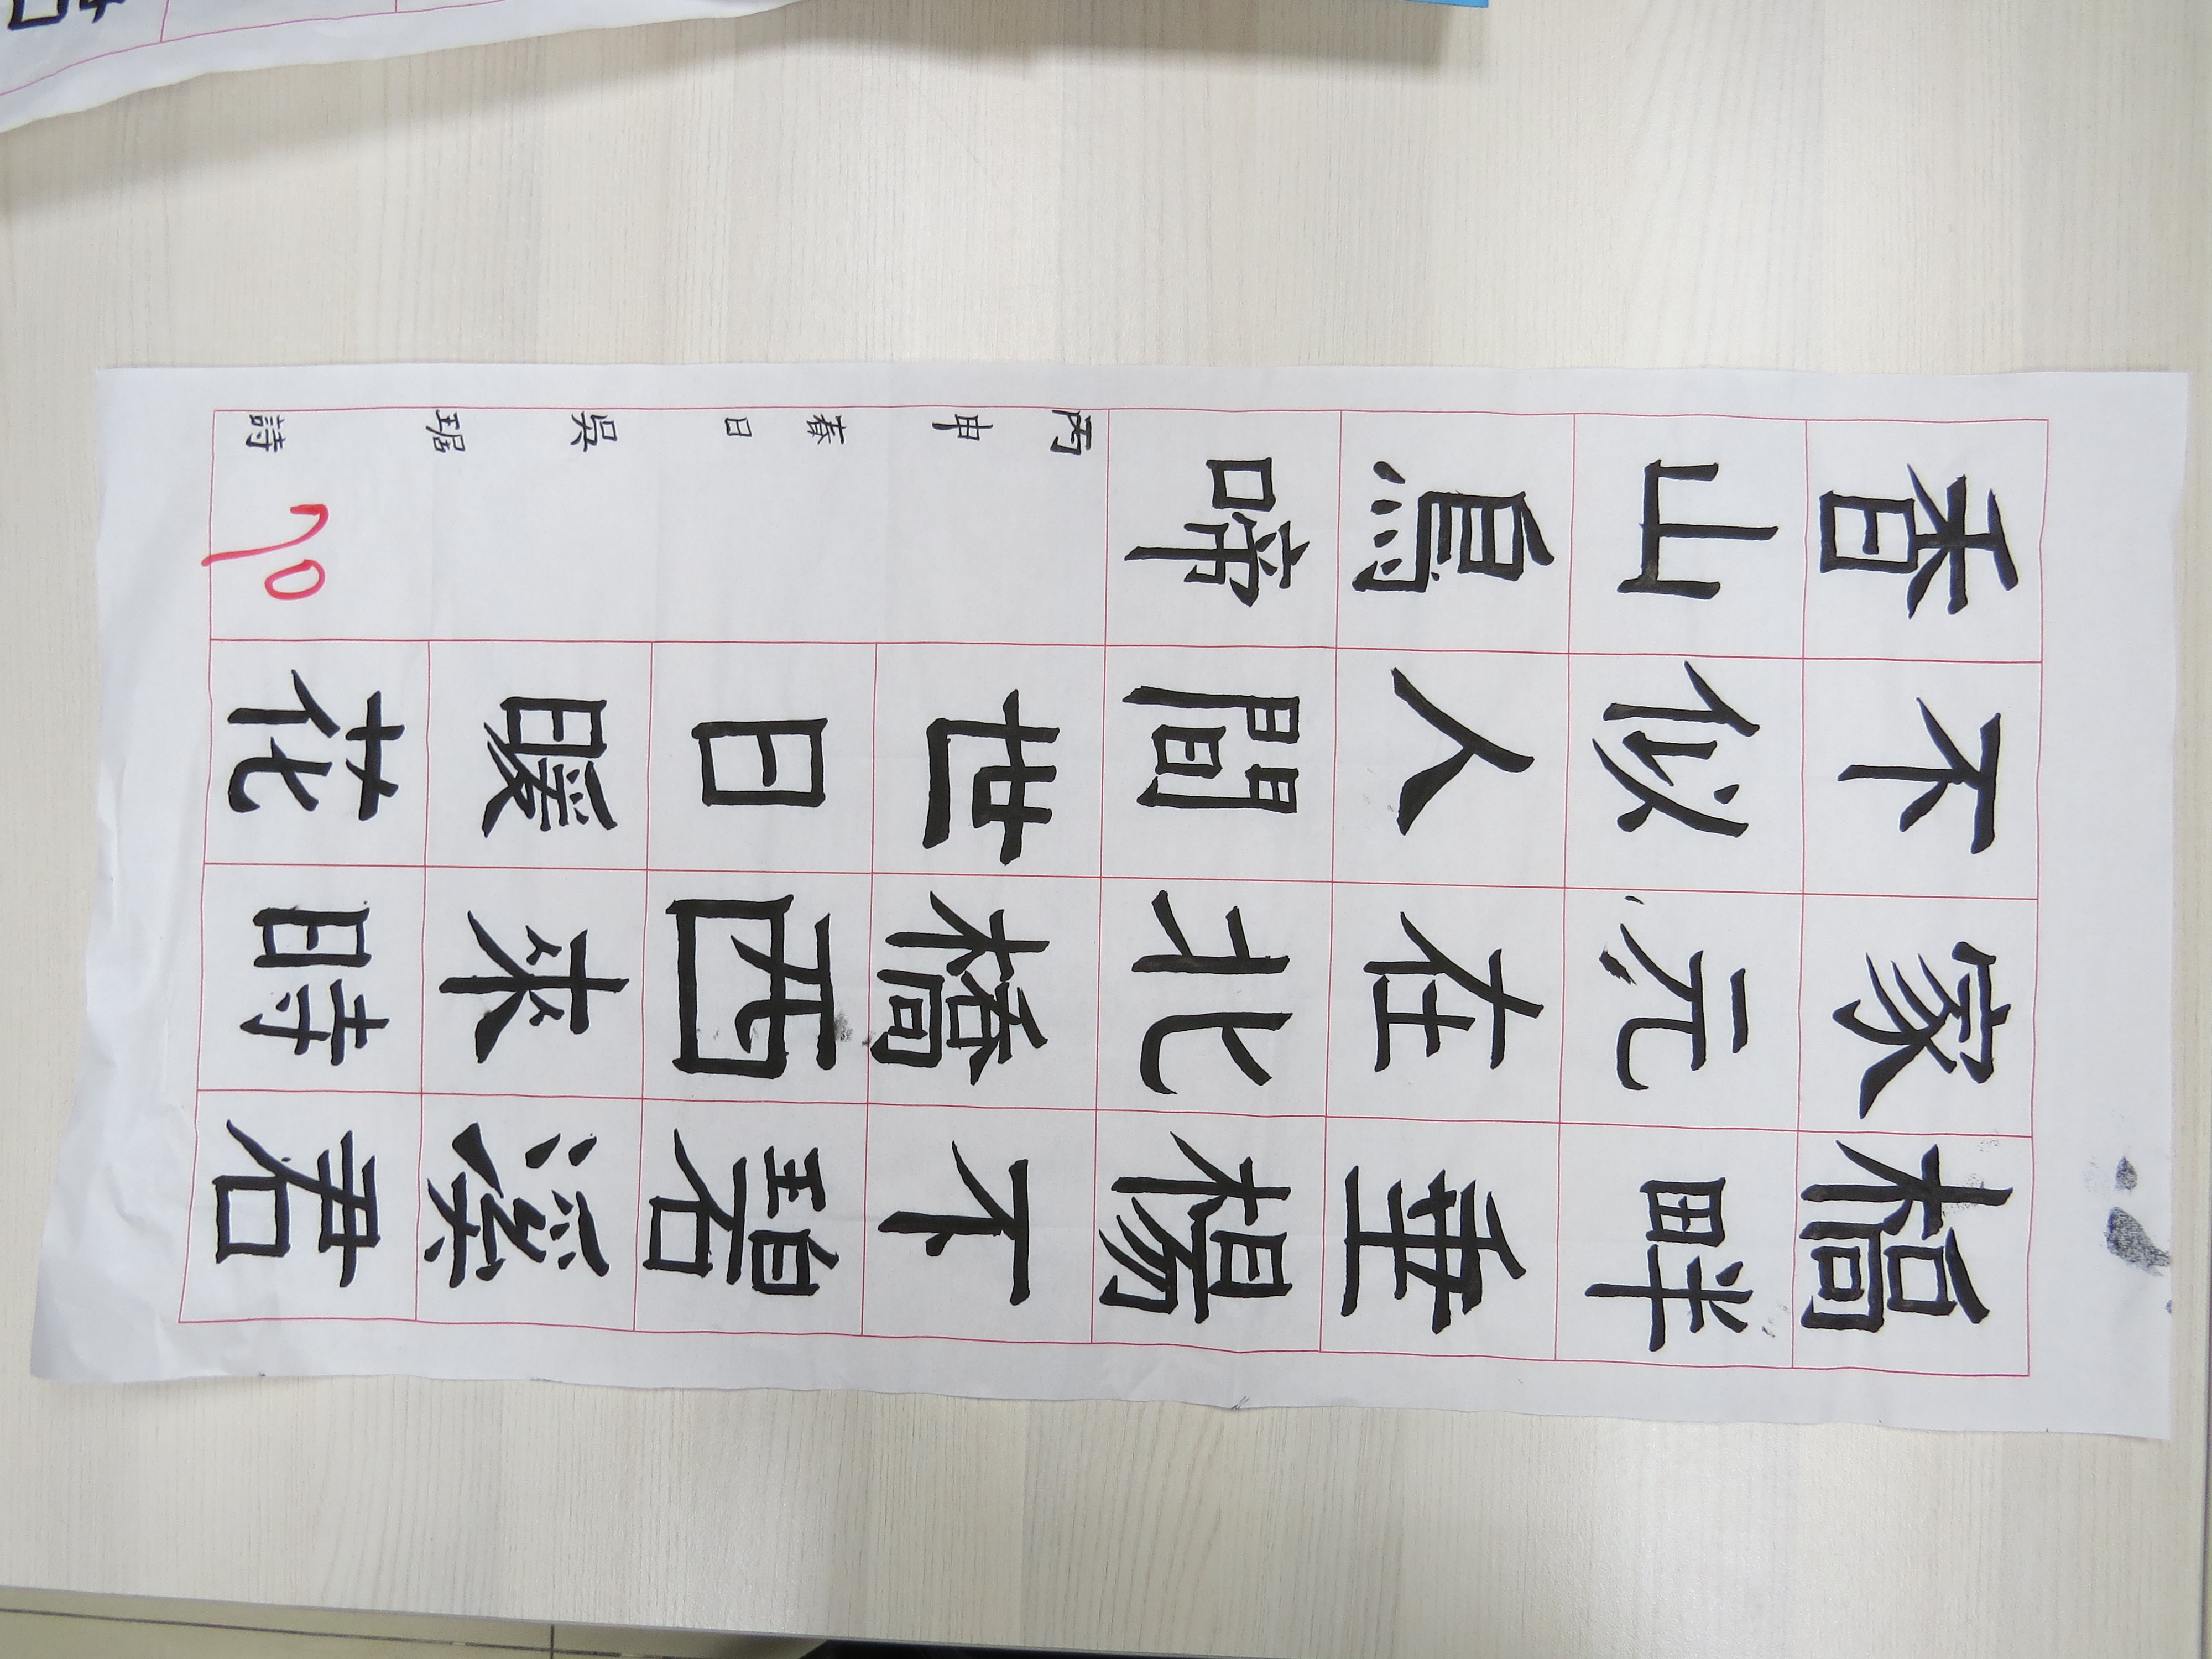 橋畔垂楊下碧溪君
家元在北橋西來時
不似人間世日暖花
香山鳥啼
丙申春日吳琚詩
90